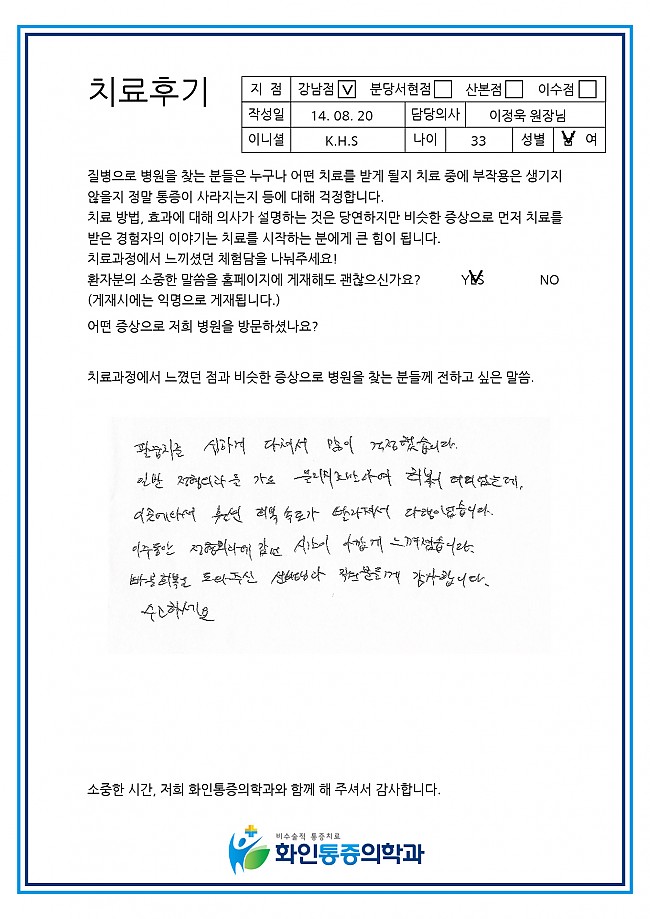 치료후기
지 점 강남점 V 분당서현점 산본점 이수점
작성일 14. 08. 20 담당의사 이정욱 원장님
이니셜 K.H.S 나이 33 성별 남 V 여
질병으로 병원을 찾는 분들은 누구나 어떤 치료를 받게 될지 치료 중에 부작용은 생기지
않을지 정말 통증이 사라지는지 등에 대해 걱정합니다.
치료 방법, 효과에 대해 의사가 설명하는 것은 당연하지만 비슷한 증상으로 먼저 치료를
받은 경험자의 이야기는 치료를 시작하는 분에게 큰 힘이 됩니다.
치료과정에서 느끼셨던 체험담을 나눠주세요!
환자분의 소중한 말씀을 홈페이지에 게재해도 괜찮으신가요? YES V NO
(게재시에는 익명으로 게재됩니다.)
어떤 증상으로 저희 병원을 방문하셨나요?
치료과정에서 느꼈던 점과 비슷한 증상으로 병원을 찾는 분들께 전하고 싶은 말씀.
팔꿈치를 심하게 다쳐서 많이 걱정했습니다.
일반 정형외과를 가요 물리치료만하여 회복이 더디었는데,
이곳에와서 훨씬 회복 속도가 빨라져서 다행이었습니다.
이주동안 정형외과에 갔던 시간이 아깝게 느껴졌습니다.
빠른회복을 도와주신 선생님과 직원분들께 감사합니다.
수고하세요
소중한 시간, 저희 화인통증의학과와 함께 해 주셔서 감사합니다.
비수술적 통증치료
화인통증의학과